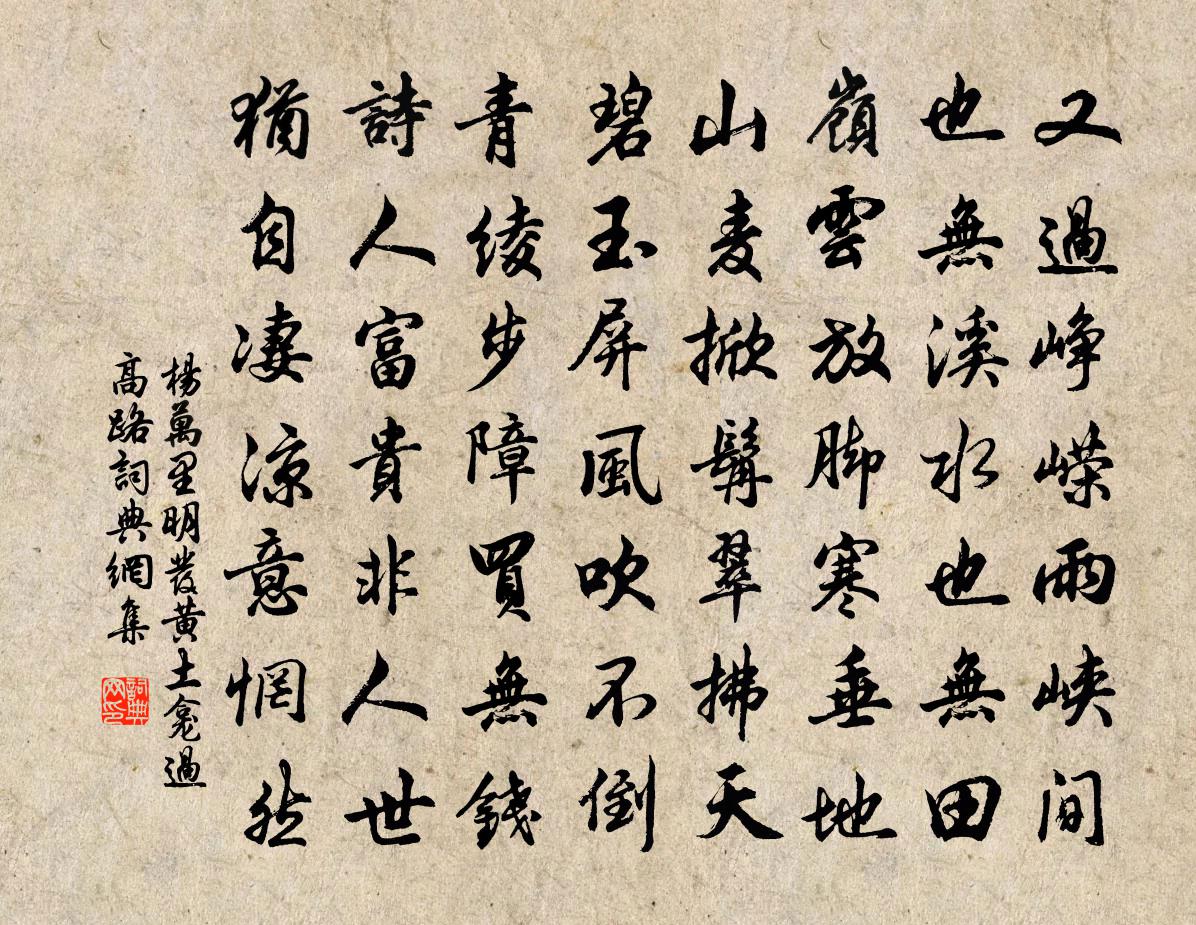 又過崢嶸兩峽間
也無溪水也無田
嶺雲放脚寒垂地
山麦掀髯翠拂天
碧玉屏風吹不倒
青綾步障買無錢
詩人富貴非人世
猶自凄涼意惘然
楊萬里明發黄土龛過
高路詞典網集
詞典網印